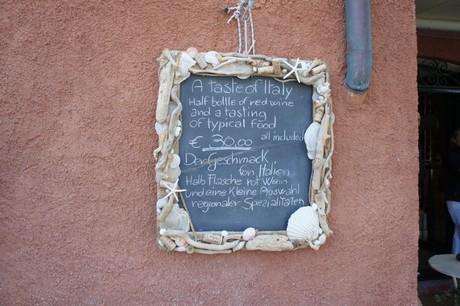 A taste of Italy
Half bottle of red wine
and a tasting
of typical food
€ 30,00 all included
Der Geschmack
von Italien
Halb Flasche rot Wein
und eine Kleine Auswahl
regionaler Spezialitäten